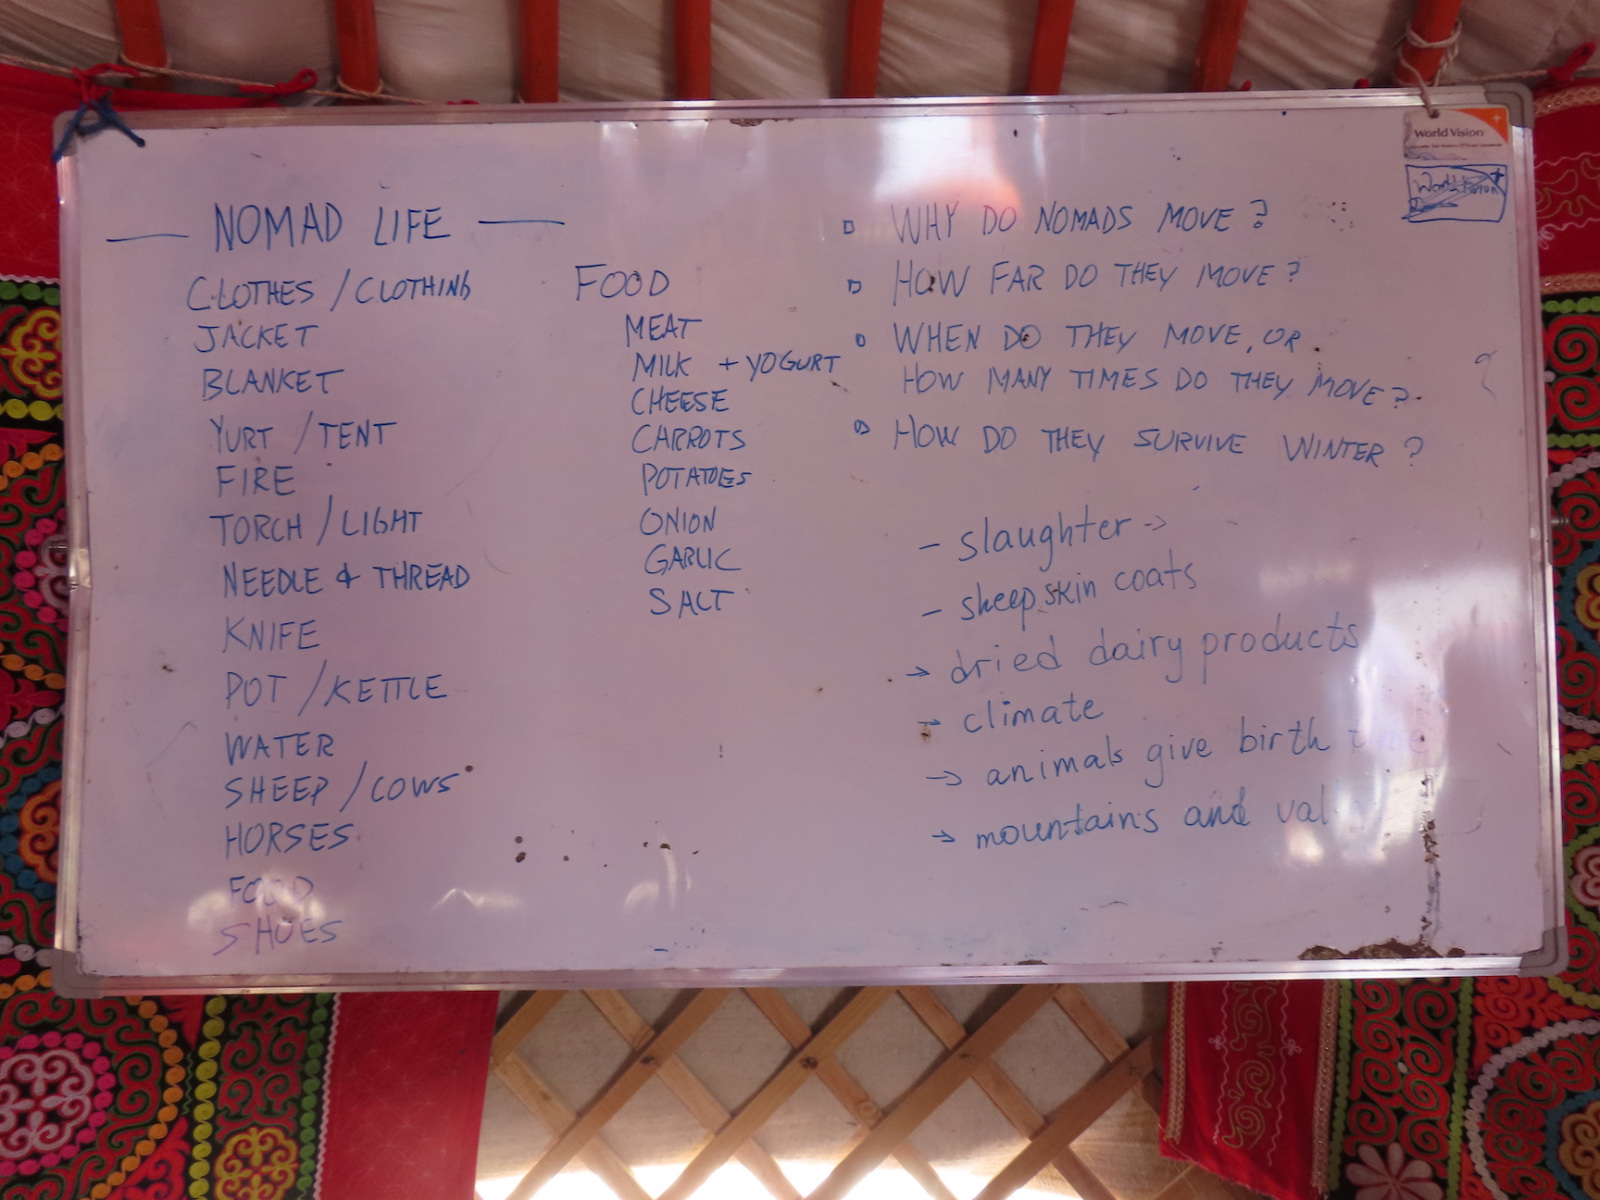 NOMAD LIFE
CLOTHES / CLOTHING
JACKET
BLANKET
YURT / TENT
FIRE
TORCH / LIGHT
NEEDLE & THREAD
KNIFE
POT / KETTLE
WATER
SHEEP / COWS
HORSES
FOOD
SHOES
FOOD
MEAT
MILK + YOGURT
CHEESE
CARROTS
POTATOES
ONION
GARLIC
SALT
WHY DO NOMADS MOVE?
HOW FAR DO THEY MOVE?
WHEN DO THEY MOVE, OR
HOW MANY TIMES DO THEY MOVE?
HOW DO THEY SURVIVE WINTER?
- slaughter →
- sheep skin coats
→ dried dairy products
→ climate
→ animals give birth time
→ mountains and val
World Vision
World Vision